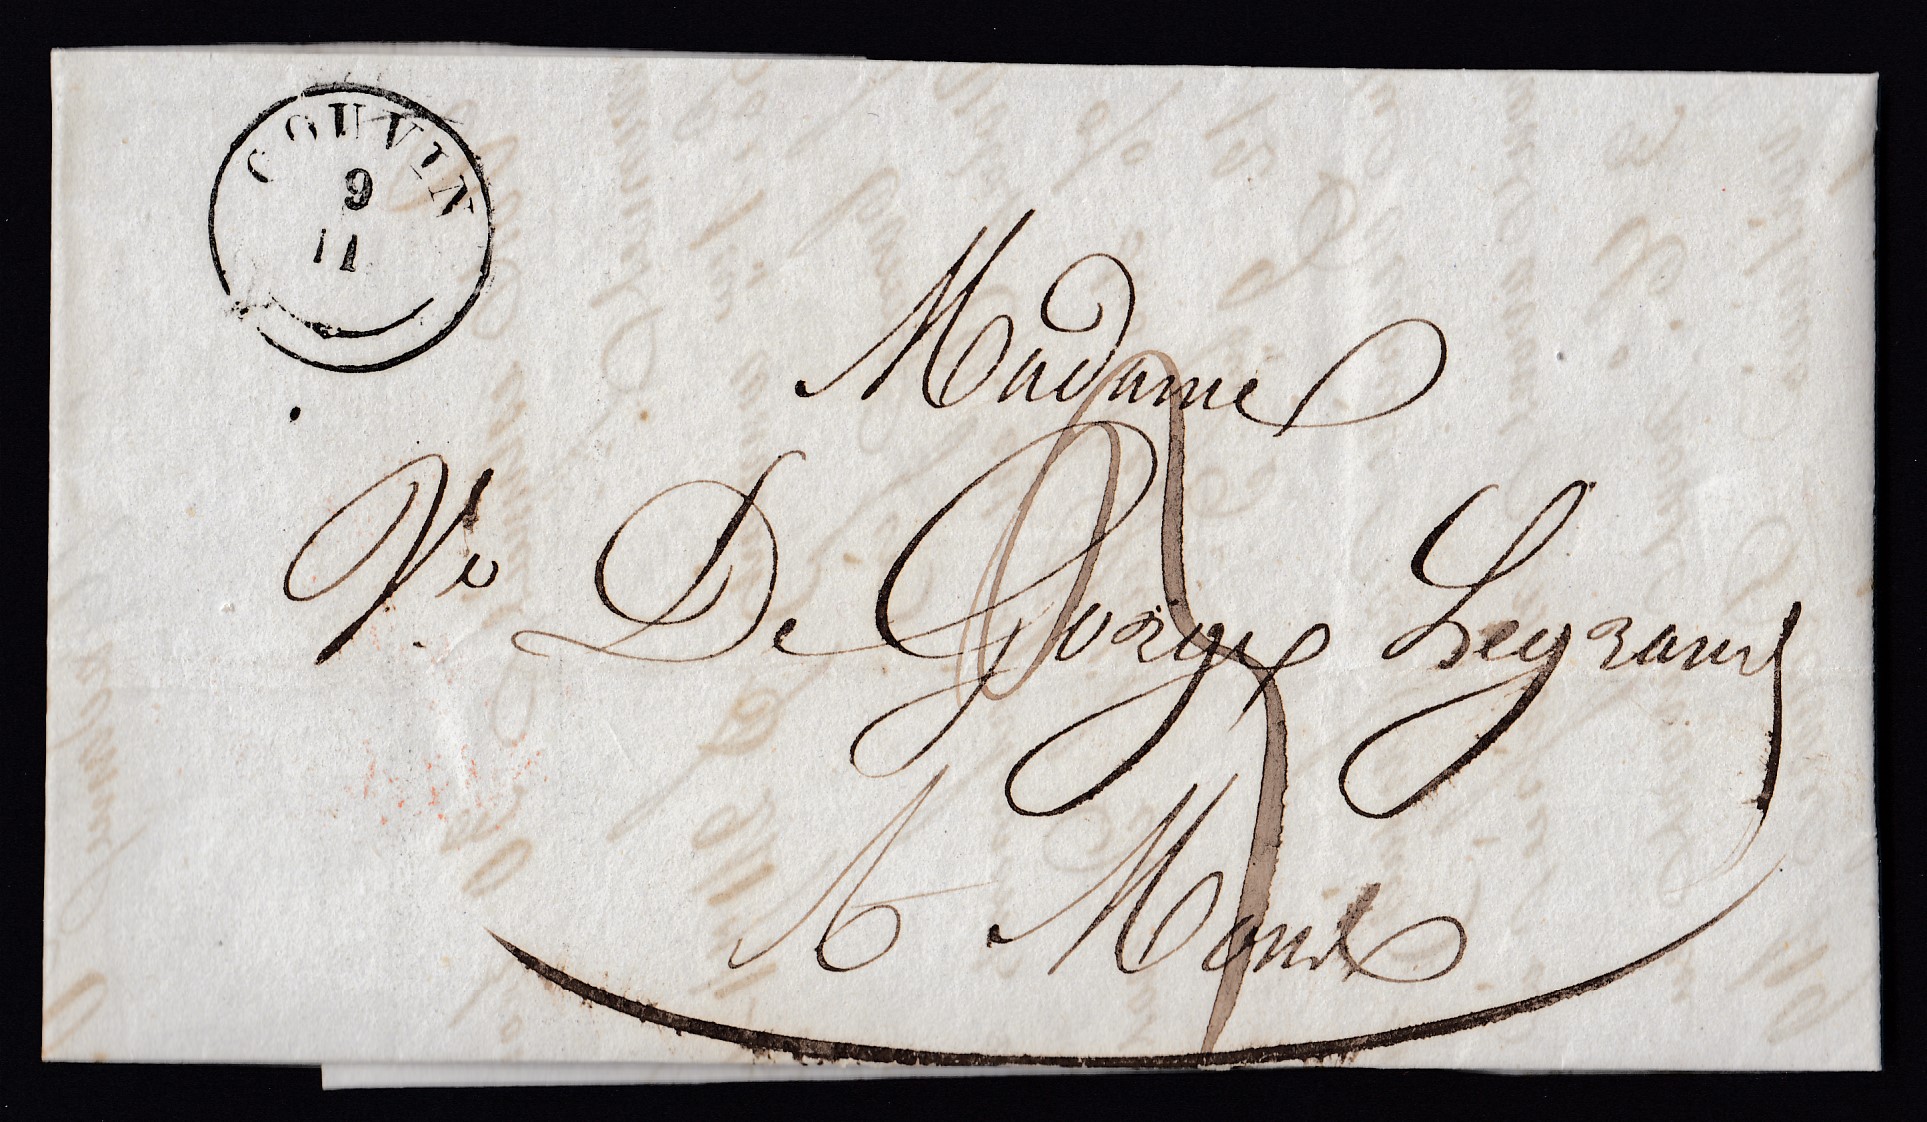 COUVIN
9
11
Madame
Ve De Gorge Legrand
A Mons